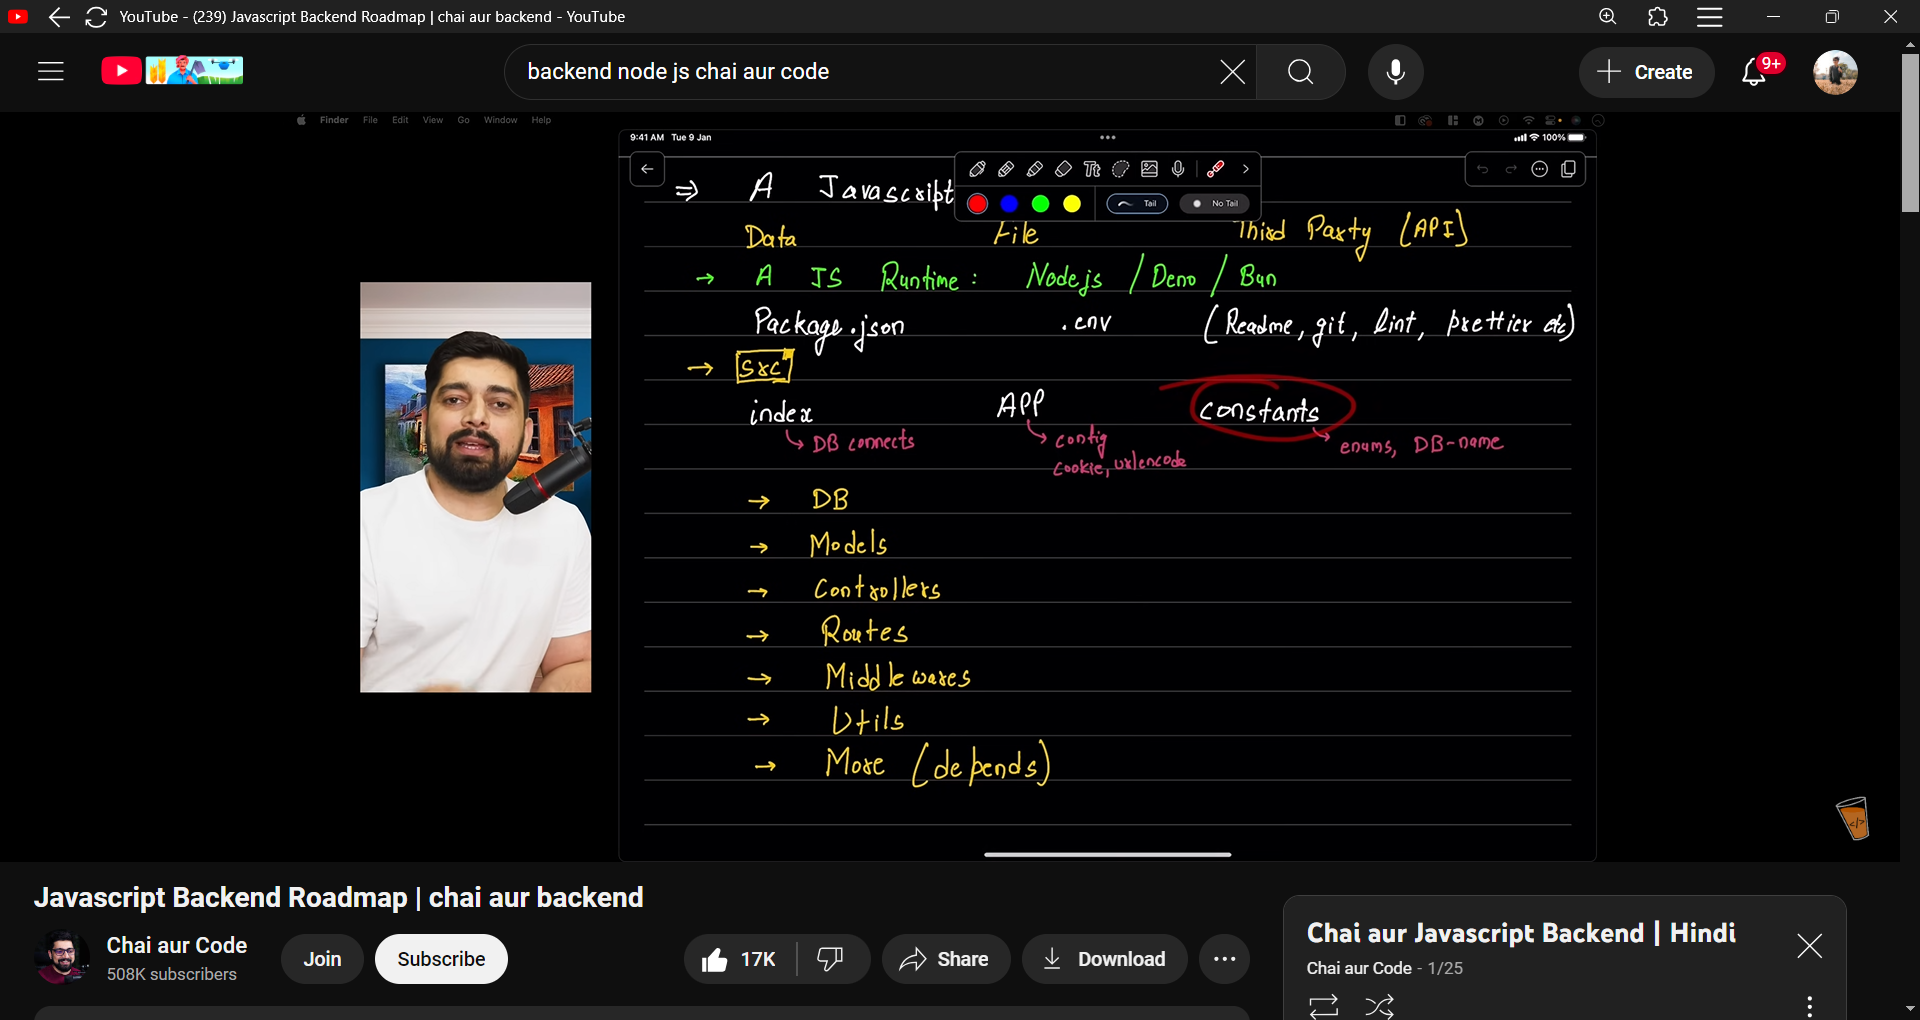 YouTube - (239) Javascript Backend Roadmap | chai aur backend - YouTube
backend node js chai aur code
Create
9+
Finder File Edit View Go Window Help
9:41 AM Tue 9 Jan
100%
Tail No Tail
⇒ A Javascript
Data File Third Party (API)
→ A JS Runtime : Nodejs / Deno / Bun
Package.json .env (Readme, git, lint, prettier etc)
→ src
index APP constants
DB connects config enums, DB-name
cookie, urlencode
→ DB
→ Models
→ Controllers
→ Routes
→ Middlewares
→ Utils
→ More (depends)
</>
Javascript Backend Roadmap | chai aur backend
Chai aur Code
508K subscribers
Join
Subscribe
17K
Share
Download
Chai aur Javascript Backend | Hindi
Chai aur Code - 1/25